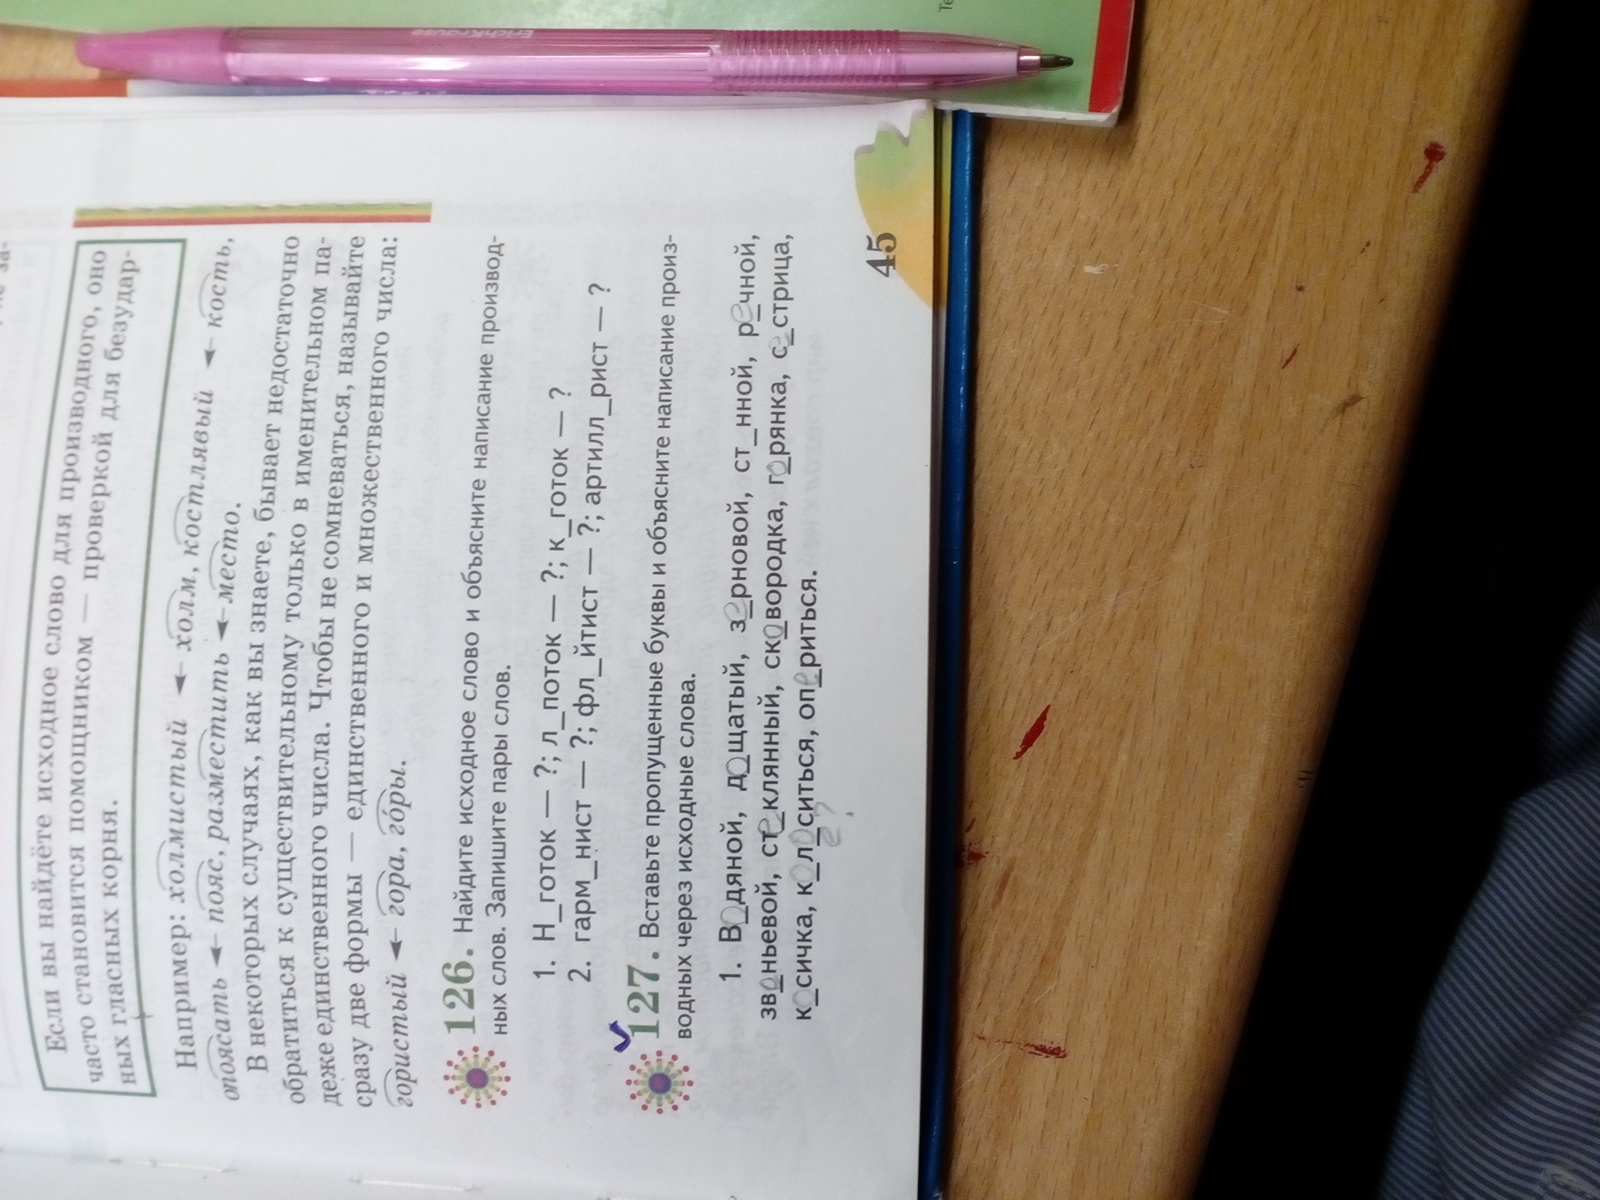 ErichKrause
Если вы найдёте исходное слово для производного, оно
часто становится помощником — проверкой для безудар-
ных гласных корня.
Например: холмистый ◄ холм, костлявый ◄ кость,
опоясать ◄ пояс, разместить ◄ место.
В некоторых случаях, как вы знаете, бывает недостаточно
обратиться к существительному только в именительном па-
деже единственного числа. Чтобы не сомневаться, называйте
сразу две формы — единственного и множественного числа:
гористый ◄ гора, го́ры.
126. Найдите исходное слово и объясните написание производ-
ных слов. Запишите пары слов.
1. Н_готок — ?; л_поток — ?; к_готок — ?
2. гарм_нист — ?; фл_йтист — ?; артилл_рист — ?
127. Вставьте пропущенные буквы и объясните написание произ-
водных через исходные слова.
1. Водяной, дощатый, зерновой, ст_нной, речной,
звоньевой, стеклянный, сковородка, горянка, сестрица,
косичка, колоситься, опериться.
е?
45